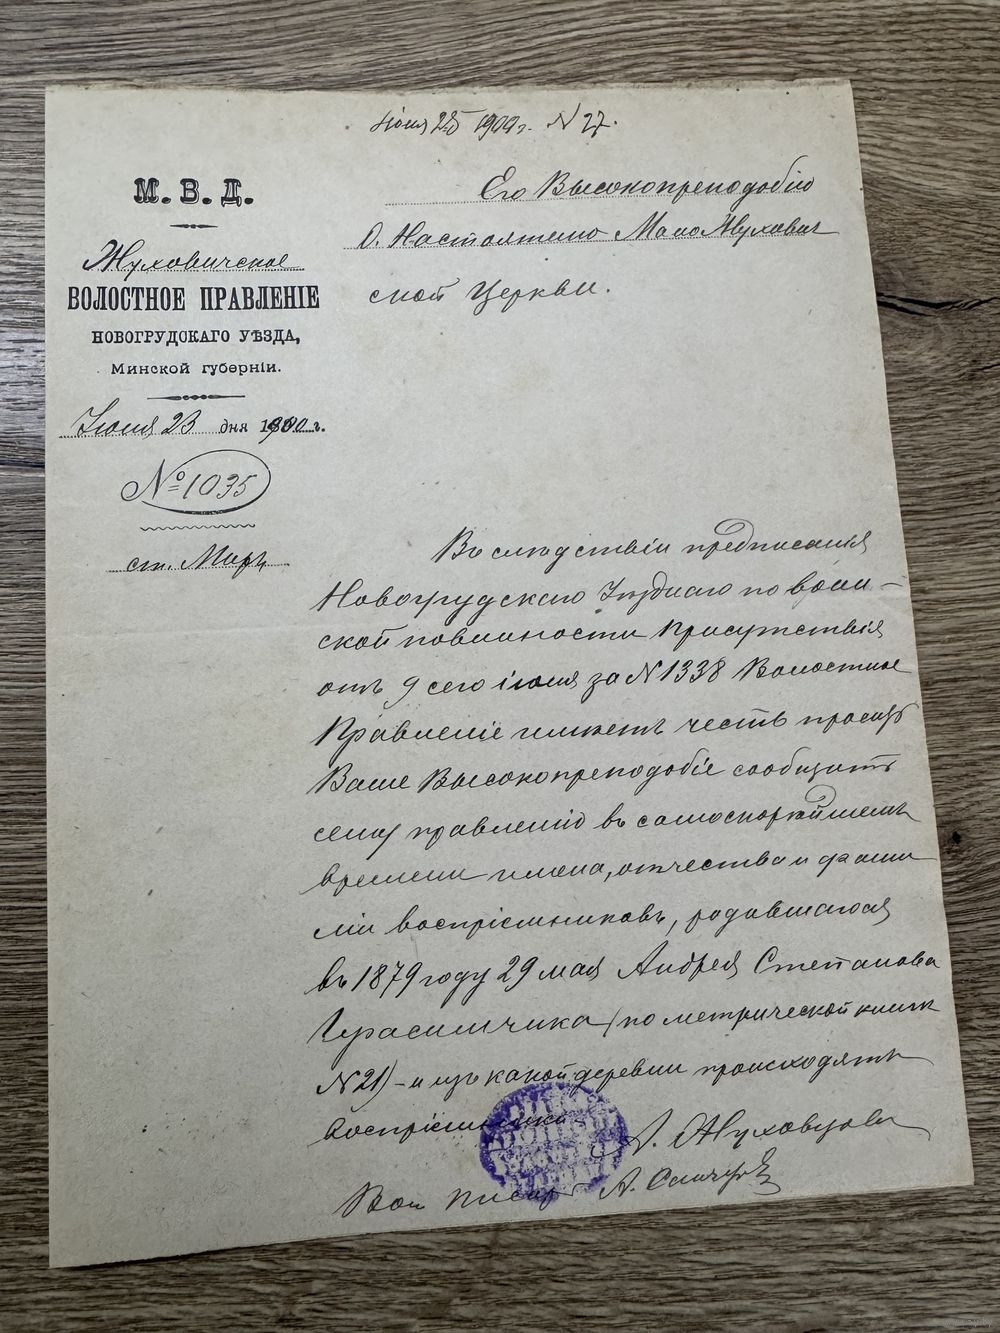 Іюня 25 1900 г. № 27.
М. В. Д.
Жуховичское
ВОЛОСТНОЕ ПРАВЛЕНІЕ
НОВОГРУДСКАГО УѢЗДА,
Минской губерніи.
Іюня 23 дня 1900 г.
№ 1035
ст. Миръ
Его Высокопреподобію
О. Настоятелю Мало Жухович
ской Церкви.
Въ слѣдствіи предписанія
Новогрудскаго Уѣзднаго по воин-
ской повинности Присутствія
отъ 9 сего іюня за № 1338 Волостное
Правленіе имѣетъ честь просить
Ваше Высокопреподобіе сообщить
сему правленію въ самоскорѣйшемъ
времени имена, отчества и фами
ліи воспріемниковъ, родившагося
въ 1879 году 29 мая Андрея Степанова
Герасимчика (по метрической книгѣ
№ 21) - и изъ какой деревни происходятъ
воспріемники
Вол писарь А.